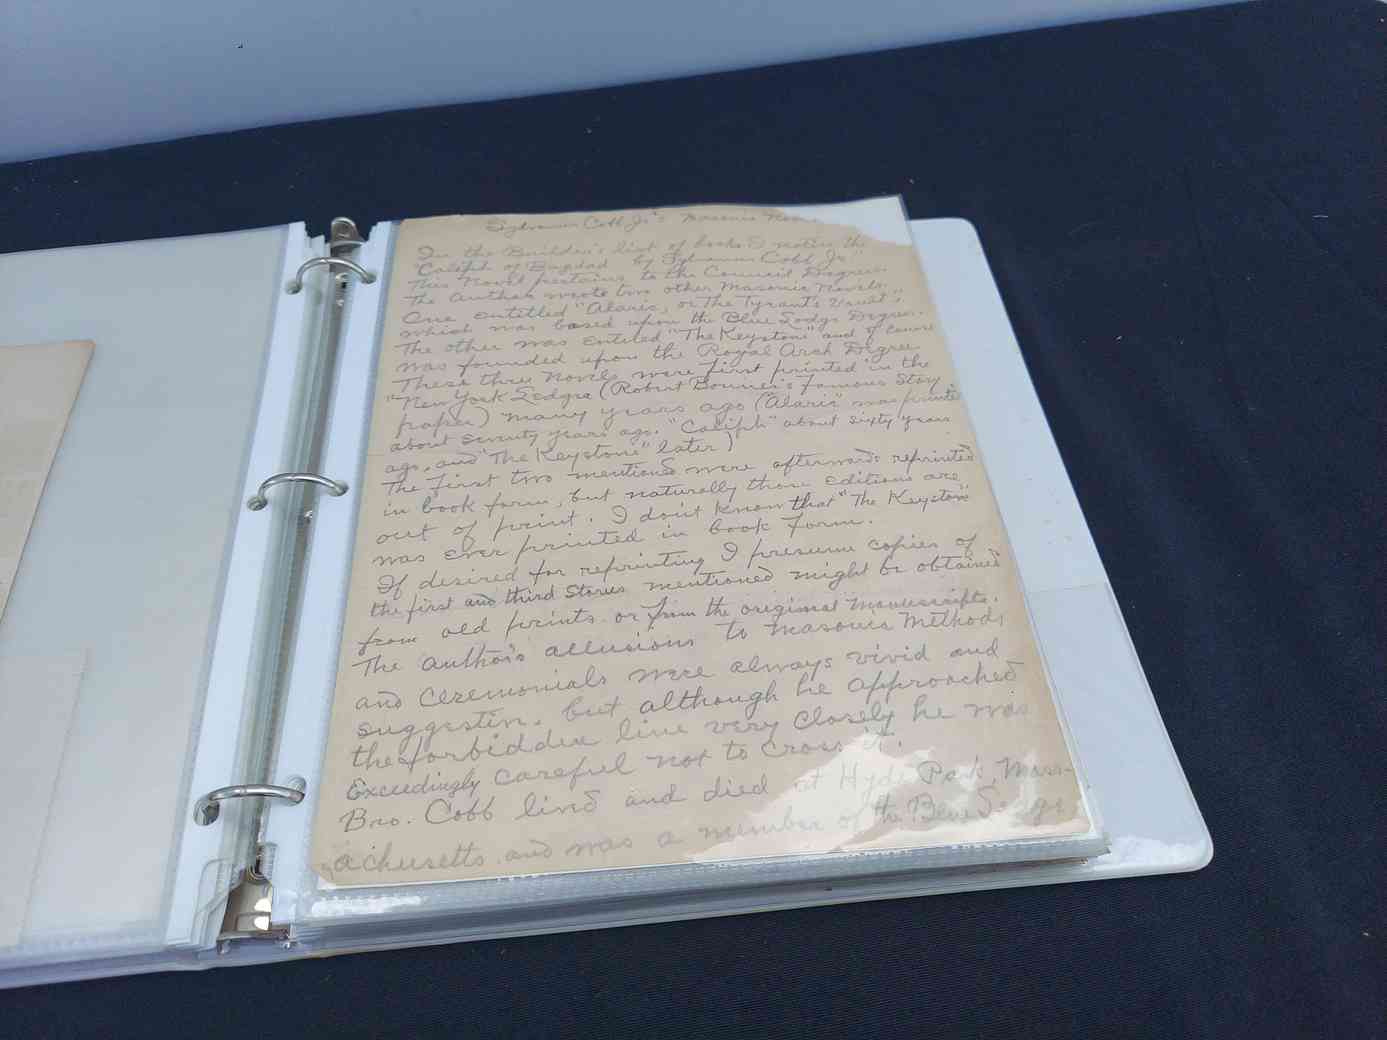 Sylvanus Cobb Jr's Masonic
In the Builder's list of books I notice the
"Caliph of Bagdad by Sylvanus Cobb Jr"
This Novel pertains to the Council Degrees.
The Author wrote two other Masonic Novels.
One entitled "Alaric, or The Tyrant's Vault",
which was based upon the Blue Lodge Degrees.
The other was entitled "The Keystone" and of course
was founded upon the Royal Arch Degree
These three novels were first printed in the
"New York Ledger (Robert Bonner's famous Story
paper) many years ago ("Alaric" was printed
about seventy years ago. "Caliph" about sixty years
ago, and "The Keystone" later)
The first two mentioned were afterwards reprinted
in book form, but naturally those editions are
out of print. I don't know that "The Keystone"
was ever printed in book form.
If desired for reprinting I presume copies of
the first and third Stories mentioned might be obtained
from old prints or from the original manuscripts.
The author's allusions to masonic methods
and ceremonials were always vivid and
suggestive. but although he approached
the forbidden line very closely he was
Exceedingly careful not to cross it.
Bro. Cobb lived and died at Hyde Park, Mass-
achusetts. and was a member of the